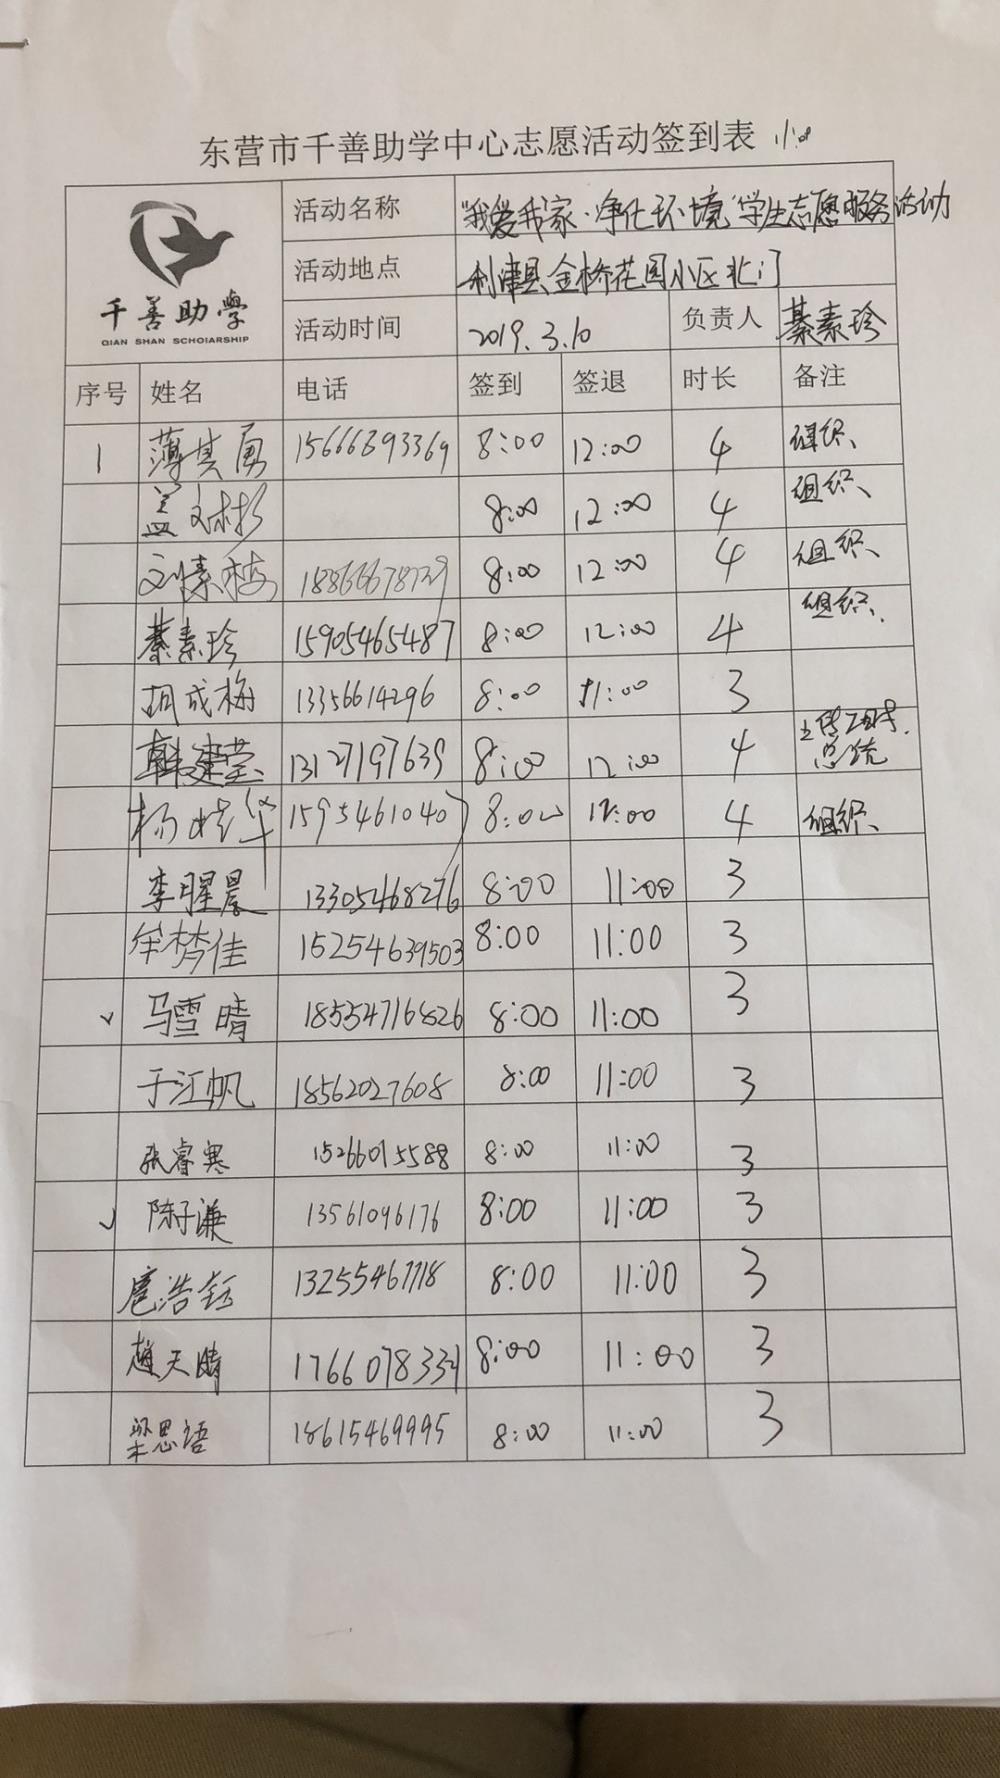 东营市千善助学中心志愿活动签到表
千善助學
QIAN SHAN SCHOIARSHIP
活动名称 "我爱我家·净化环境"学生志愿服务活动
活动地点 利津县金桥花园小区北门
活动时间 2019.3.10 负责人 綦素珍
序号 姓名 电话 签到 签退 时长 备注
1 薄其勇 15666393369 8:00 12:00 4 组织、
盖 8:00 12:00 4 组织、
刘素梅 18866678729 8:00 12:00 4 组织、
綦素珍 15905465487 8:00 12:00 4 组织、
胡成梅 13356614296 8:00 11:00 3
韩建莹 13127197639 8:00 12:00 4 上传工时、
总统
杨 华 15954610407 8:00 12:00 4 组织、
李星晨 13305468276 8:00 11:00 3
牟梦佳 15254639503 8:00 11:00 3
√ 马雪晴 18554716826 8:00 11:00 3
于江帆 18562027608 8:00 11:00 3
张睿寒 15266015588 8:00 11:00 3
√ 陈子谦 13561096176 8:00 11:00 3
扈浩钰 13255467718 8:00 11:00 3
赵天晴 17660783321 8:00 11:00 3
梁思语 18615469995 8:00 11:00 3